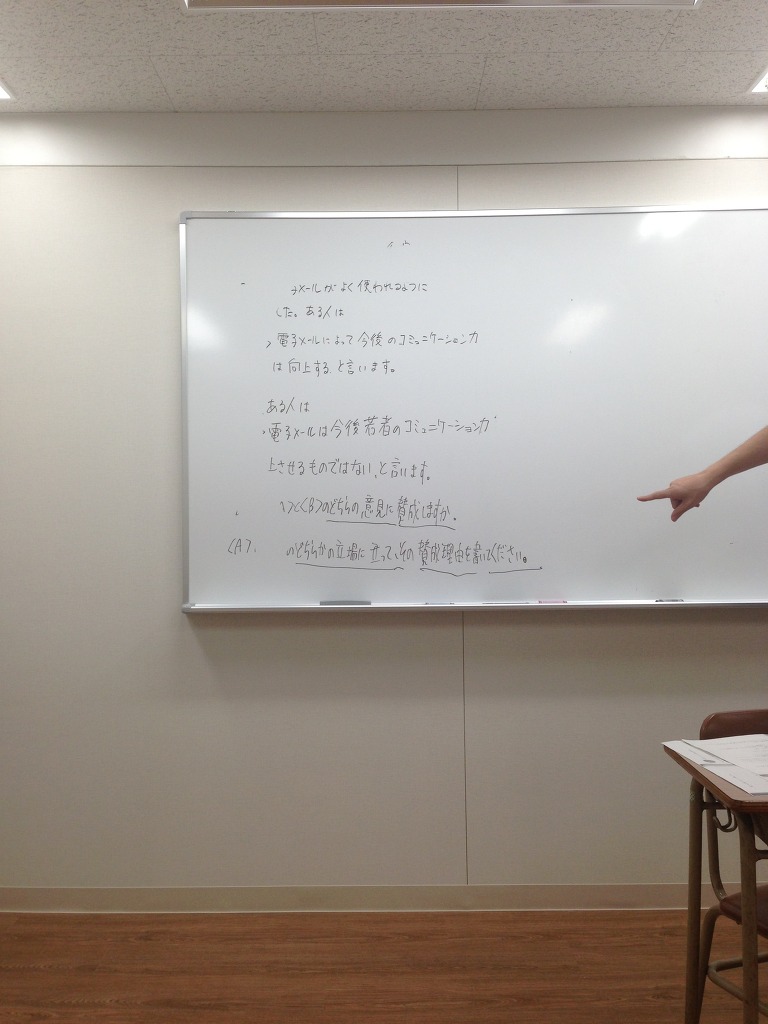 メールがよく使われるように
した。ある人は
電子メールによって今後のコミュニケーション力
は向上する、と言います。
ある人は
電子メールは今後若者のコミュニケーション力
上させるものではない、と言います。
〉と〈B〉のどちらの意見に賛成しますか。
〈A〉、のどちらかの立場に立って、その賛成理由を書いてください。